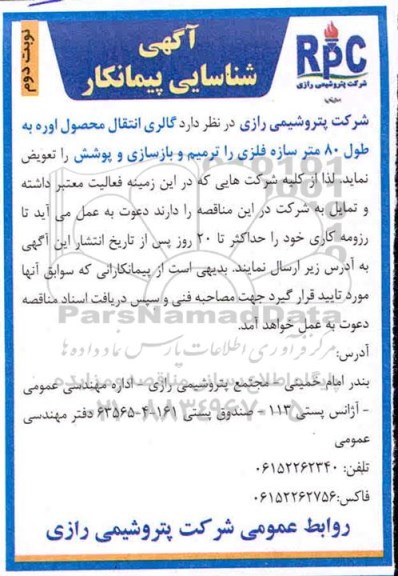 نوبت دوم
آگهی
شناسایی پیمانکار
RPC
شرکت پتروشیمی رازی
شرکت پتروشیمی رازی در نظر دارد گالری انتقال محصول اوره به
طول ۸۰ متر سازه فلزی را ترمیم و بازسازی و پوشش را تعویض
نماید. لذا از کلیه شرکت هایی که در این زمینه فعالیت معتبر داشته
و تمایل به شرکت در این مناقصه را دارند دعوت به عمل می آید تا
رزومه کاری خود را حداکثر تا ۲۰ روز پس از تاریخ انتشار این آگهی
به آدرس زیر ارسال نمایند. بدیهی است از پیمانکارانی که سوابق آنها
مورد تایید قرار گیرد جهت مصاحبه فنی و سپس دریافت اسناد مناقصه
دعوت به عمل خواهد آمد.
ParsNamadData
مرکز فرآوری اطلاعات پارس نماد داده ها
آدرس:
پایگاه اطلاع رسانی مناقصه و مزایده
بندر امام خمینی - مجتمع پتروشیمی رازی - اداره مهندسی عمومی
- آژانس پستی ۱۱۳ - صندوق پستی ۱۶۱-۴-۶۳۵۶۵ دفتر مهندسی
۰۲۱-۸۸۳۴۹۶۷۰-۵
عمومی
تلفن: ۰۶۱۵۲۲۶۲۳۴۰
فاکس: ۰۶۱۵۲۲۶۲۷۵۶
روابط عمومی شرکت پتروشیمی رازی